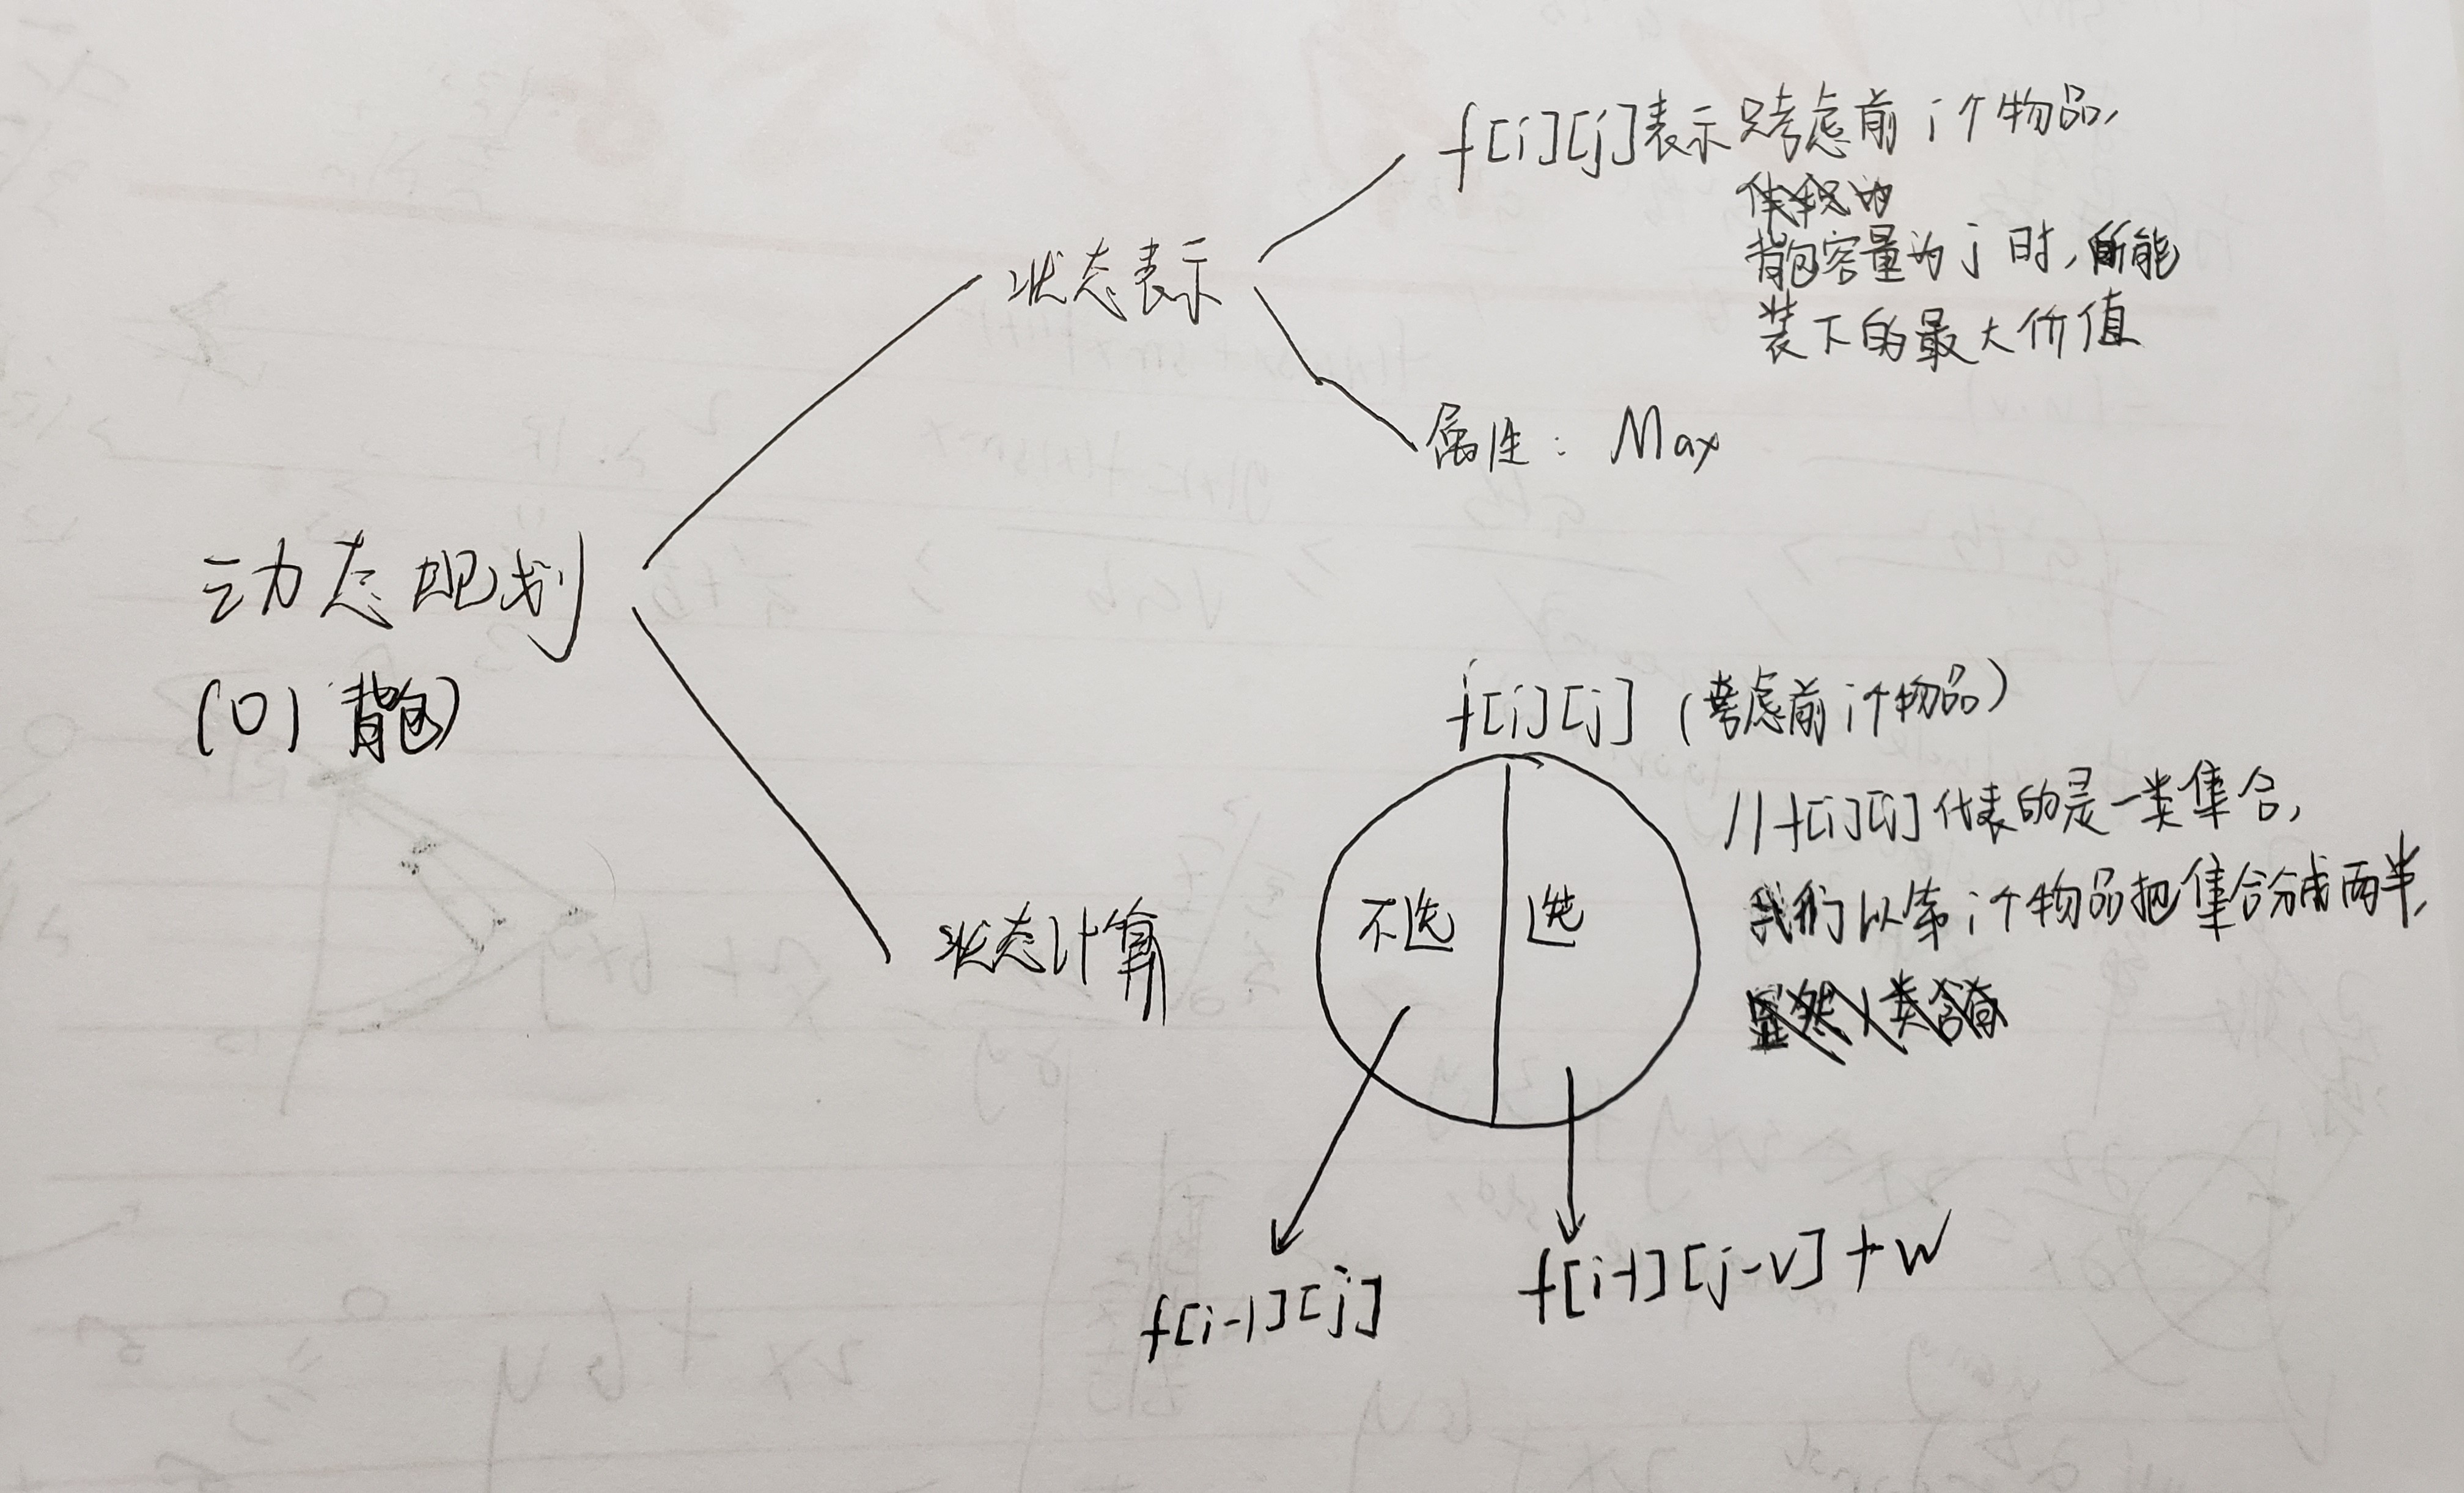 动态规划
(01背包)
状态表示
f[i][j]表示只考虑前i个物品,
背包容量为j时,所能
装下的最大价值
属性: Max
状态计算
f[i][j] (考虑前i个物品)
不选 选
//f[i][j]代表的是一类集合,
我们以第i个物品把集合分成两半,
f[i-1][j]
f[i-1][j-v]+w